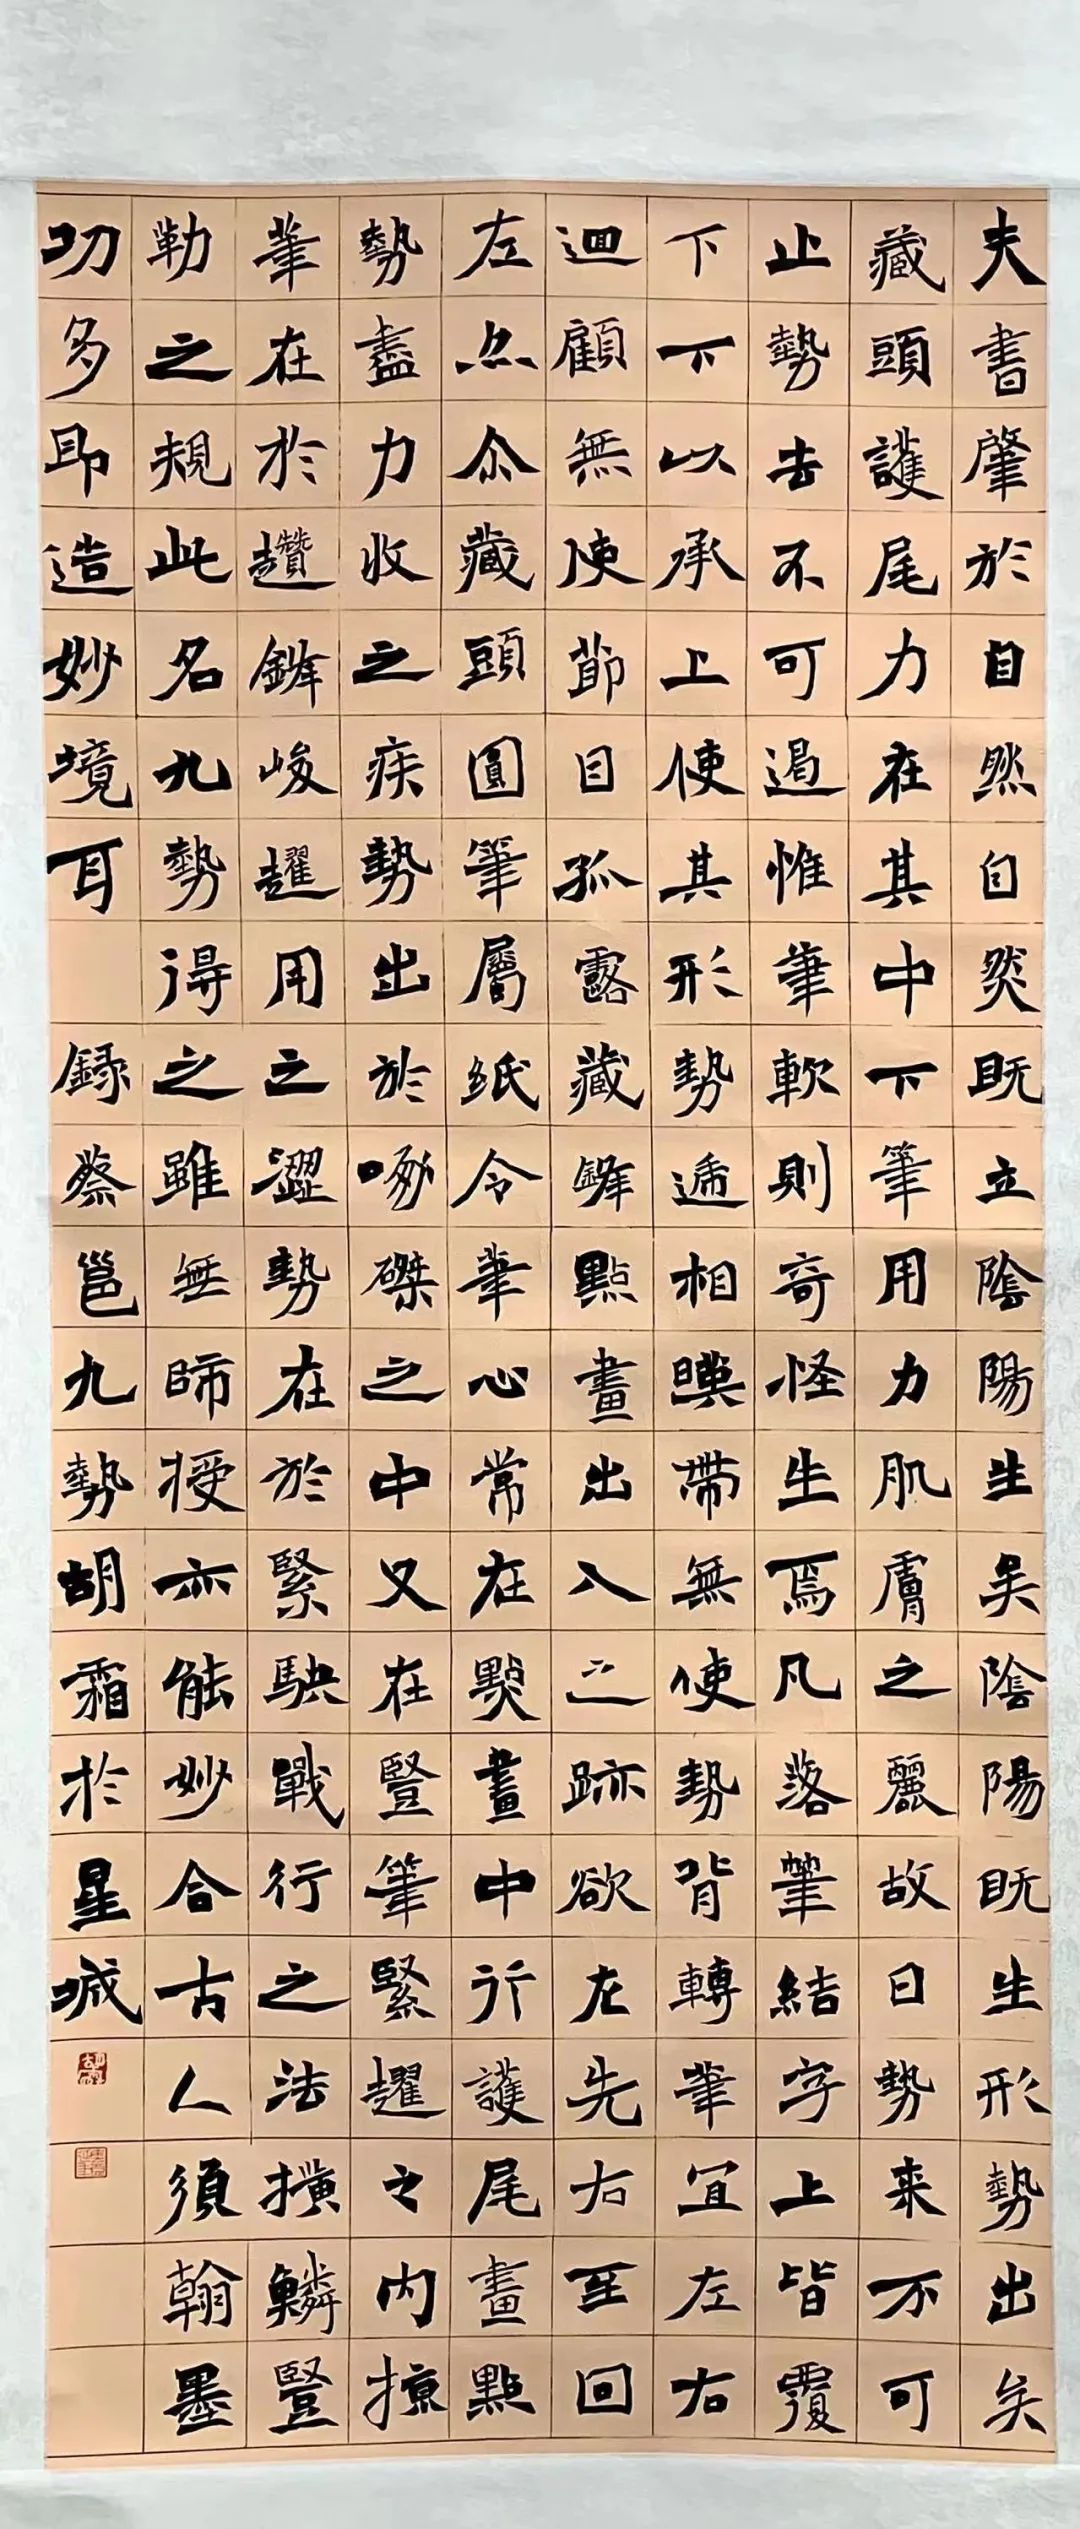 夫書肇於自然自然既立陰陽生矣陰陽既生形勢出矣
藏頭護尾力在其中下筆用力肌膚之麗故曰勢来不可
止勢去不可遏惟筆軟則奇怪生焉凡落筆結字上皆覆
下下以承上使其形勢遞相暎帶無使勢背轉筆宜左右
迴顧無使節目孤露藏鋒點畫出入之跡欲左先右至回
左亦尒藏頭圓筆屬紙令筆心常在點畫中行護尾畫點
勢盡力收之疾勢出於啄磔之中又在豎筆緊趯之内掠
筆在於趲鋒峻趯用之澀勢在於緊駃戰行之法擴鱗豎
勒之規此名九勢得之雖無師授亦能妙合古人須翰墨
功多即造妙境耳 録蔡邕九勢胡霜於星城